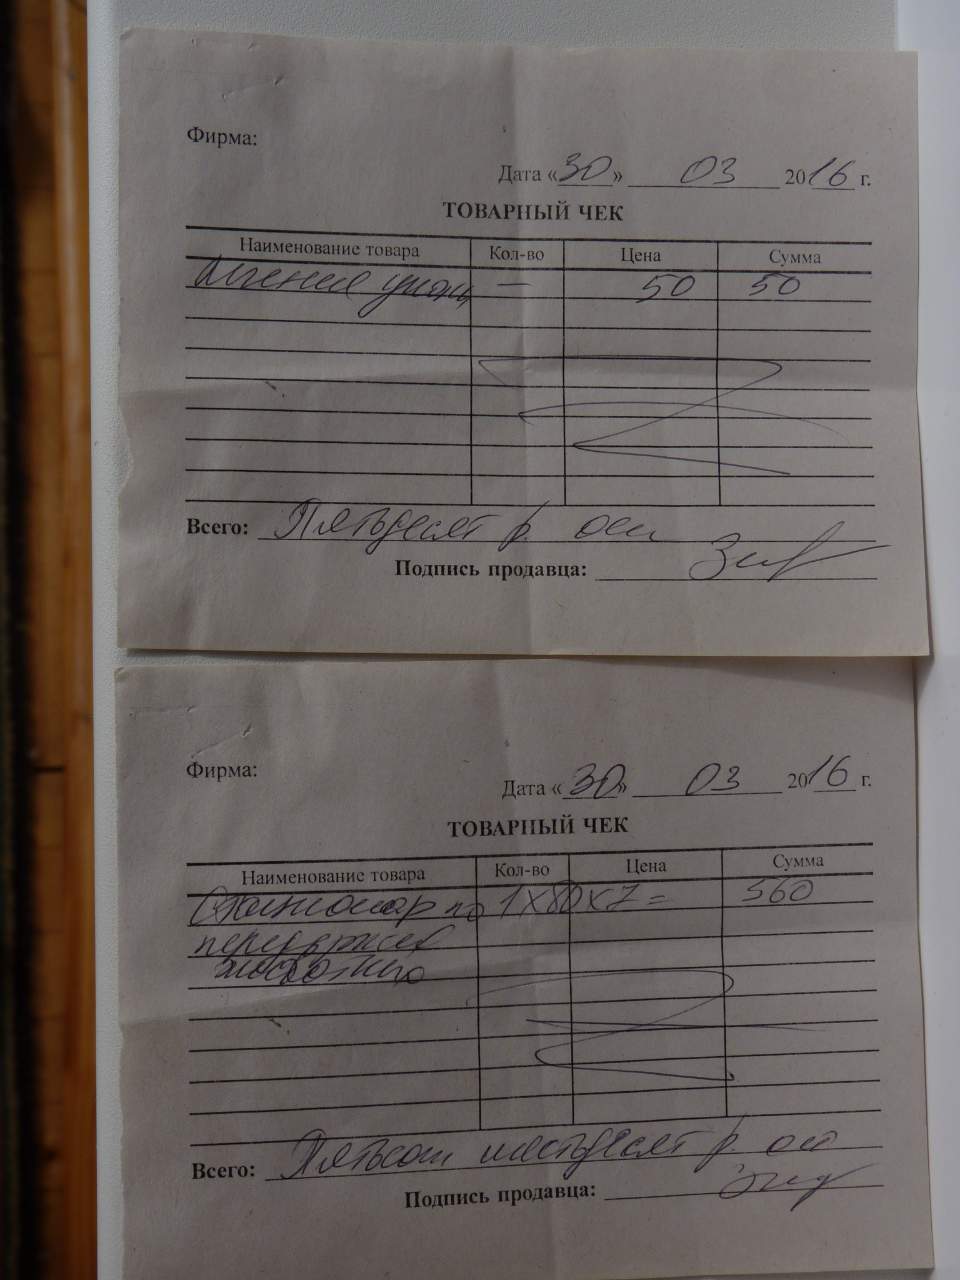 Фирма:
Дата «30» 03 2016 г.
ТОВАРНЫЙ ЧЕК
Наименование товара Кол-во Цена Сумма
— 50 50
Всего: Пятьдесят р. оо
Подпись продавца:
Фирма:
Дата «30» 03 2016 г.
ТОВАРНЫЙ ЧЕК
Наименование товара Кол-во Цена Сумма
Стационар по 1х80х7= 560
передержке
животного
Всего: Пятьсот шестьдесят р. оо
Подпись продавца: